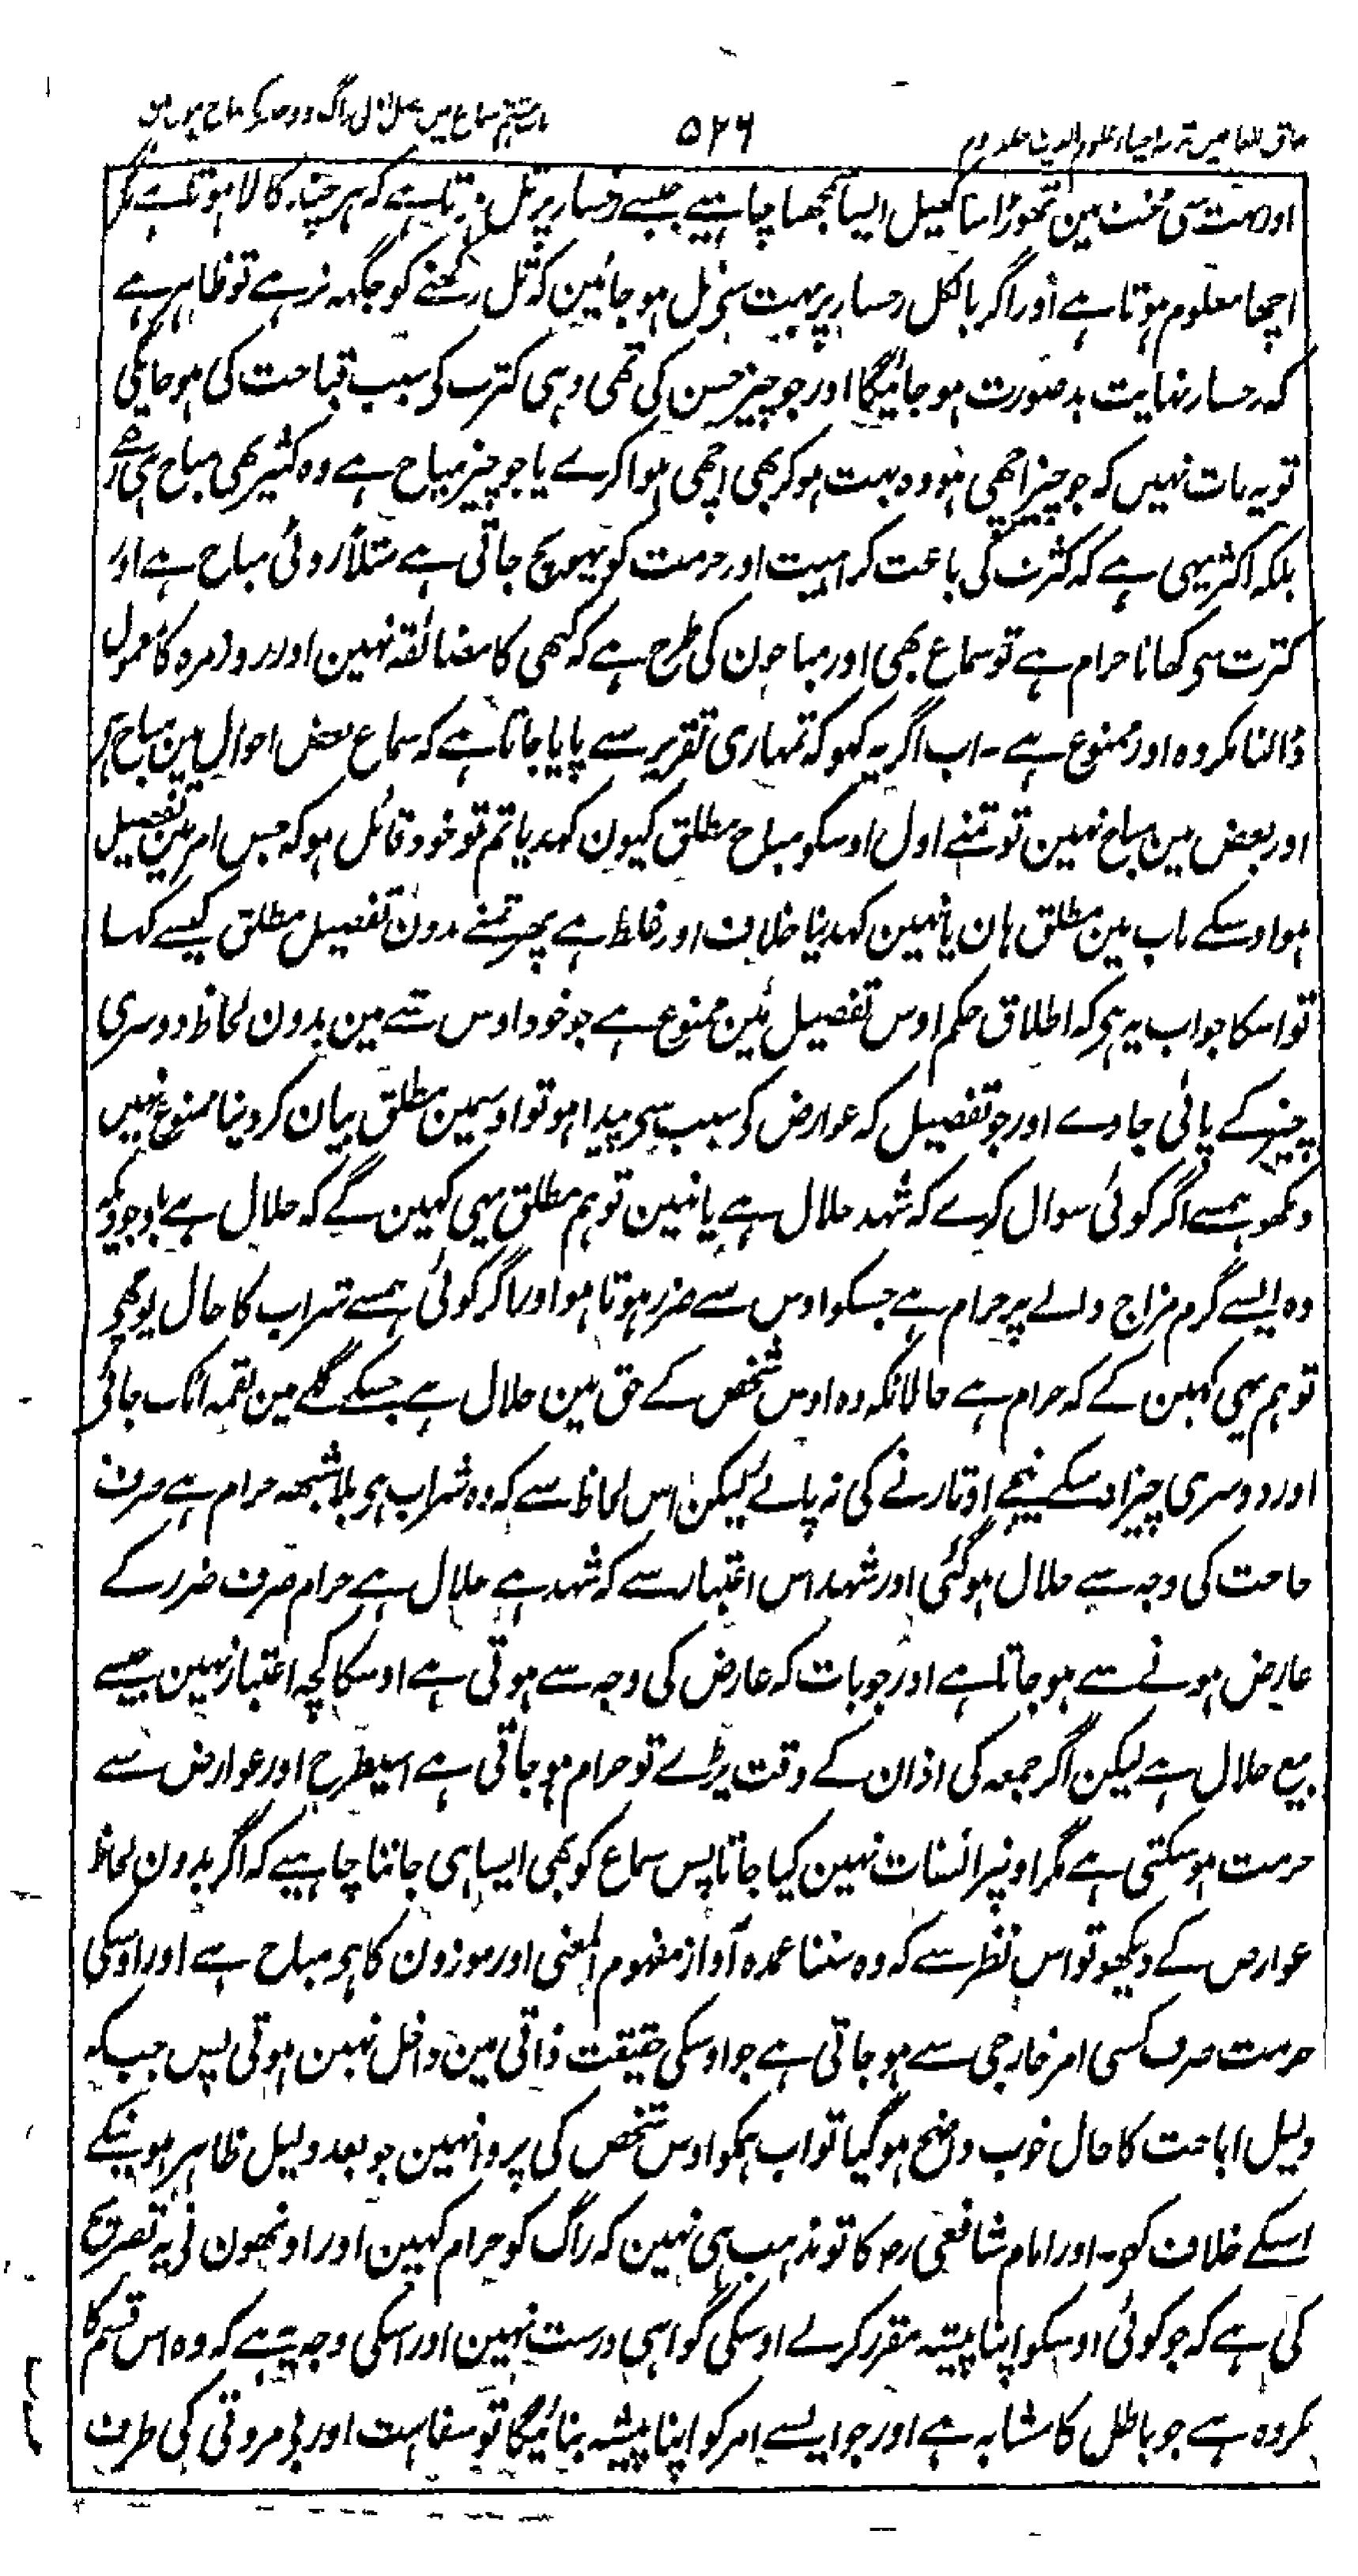 مذاق العارفین ترجمہ احیاء علوم الدین جلد دوم ۵۲۶ باب ہشتم سماع میں
اور بہت سی محنت مین تھوڑا سا کھیل ایسا سمجھنا چاہیے جیسے رخسار پر تل ہوتا ہے کہ ہر چند کالا ہوتا ہے مگر
اچھا معلوم ہوتا ہے اور اگر بالکل رخسار پر بہت سے تل ہو جائین کہ تل رکھنے کو جگہہ نرہے تو ظاہر ہے
کہ رخسار نہایت بدصورت ہو جائیگا اور جو چیز حسن کی تھی وہی کثرت کی سبب قباحت کی ہو جائیگی
تو یہ بات نہیں کہ جو چیز اچھی ہو وہ بہت ہو کر بھی اچھی ہوا کرے یا جو چیز مباح ہے وہ کثیر بھی مباح ہی رہے
بلکہ اکثر یہی ہے کہ کثرت کی باعث کراہیت اور حرمت کو پہونچ جاتی ہے مثلاً روٹی مباح ہے اور
کثرت سے کھانا حرام ہے تو سماع بھی اور مباحون کی طرح ہے کہ کبھی کا مضائقہ نہین اور روزمرہ کا معمول
ڈالنا مکروہ اور ممنوع ہے ۔ اب اگر یہ کہو کہ تمہاری تقریر سے پایا جاتا ہے کہ سماع بعض احوال مین مباح ہے
اور بعض مین مباح نہین تو تمنے اول اوسکو مباح مطلق کیون کہدیا تم تو خود قائل ہو کہ جس امر مین تفصیل
ہو اوسکے باب مین مطلق ہان یا نہین کہدینا خلاف اور غلط ہے پھر تمنے بدون تفصیل مطلق کیسے کہا
تو اسکا جواب یہ ہے کہ اطلاق حکم اوس تفصیل مین ممنوع ہے جو خود اوس شے مین بدون لحاظ دوسری
چیز کے پائی جاوے اور جو تفصیل کہ عوارض کی سبب سے پیدا ہو تو اوسمین مطلق بیان کر دینا ممنوع نہیں
دیکھو ہمسے اگر کوئی سوال کرے کہ شہد حلال ہے یا نہین تو ہم مطلق یہی کہین گے کہ حلال ہے باوجودیکہ
وہ ایسے گرم مزاج والے پر حرام ہے جسکو اوس سے ضرر ہوتا ہو اور اگر کوئی ہمسے شراب کا حال پوچھے
تو ہم یہی کہین گے کہ حرام ہے حالانکہ وہ اوس شخص کے حق مین حلال ہے جسکے گلے مین لقمہ اٹک جائے
اور دوسری چیز اوسکے نیچے اوتارنے کی نہ پائے لیکن اس لحاظ سے کہ وہ شراب ہے بلا شبھہ حرام ہے صرف
حاجت کی وجہ سے حلال ہو گئی اور شہد اس اعتبار سے کہ شہد ہے حلال ہے حرام صرف ضرر کے
عارض ہونے سے ہو جاتا ہے اور جو بات کہ عارض کی وجہ سے ہوتی ہے اوسکا کچھ اعتبار نہین جیسے
بیع حلال ہے لیکن اگر جمعہ کی اذان کے وقت پڑے تو حرام ہو جاتی ہے اسیطرح اور عوارض سے
حرمت ہو سکتی ہے مگر اونپر التفات نہین کیا جاتا پس سماع کو بھی ایسا ہی جاننا چاہیے کہ اگر بدون لحاظ
عوارض کے دیکھو تو اس نظر سے کہ وہ سننا عمدہ آواز مفہوم المعنی اور موزون کا ہے مباح ہے اور اوسکی
حرمت صرف کسی امر خارجی سے ہو جاتی ہے جو اوسکی حقیقت ذاتی مین داخل نہین ہوتی پس جبکہ
دلیل اباحت کا حال خوب واضح ہو گیا تو اب ہمکو اوس شخص کی پروا نہین جو بعد دلیل ظاہر ہونیکے
اسکے خلاف کہے ۔ اور امام شافعی رح کا تو مذہب ہی نہین کہ راگ کو حرام کہین اور اونھون نے یہ تصریح
کی ہے کہ جو کوئی اوسکو اپنا پیشہ مقرر کر لے اوسکی گواہی درست نہین اور اسکی وجہ یہ ہے کہ وہ اس قسم کا
مکروہ ہے جو باطل کا مشابہ ہے اور جو ایسے امر کو اپنا پیشہ بنائیگا تو سفاہت اور بے مروتی کی طرف